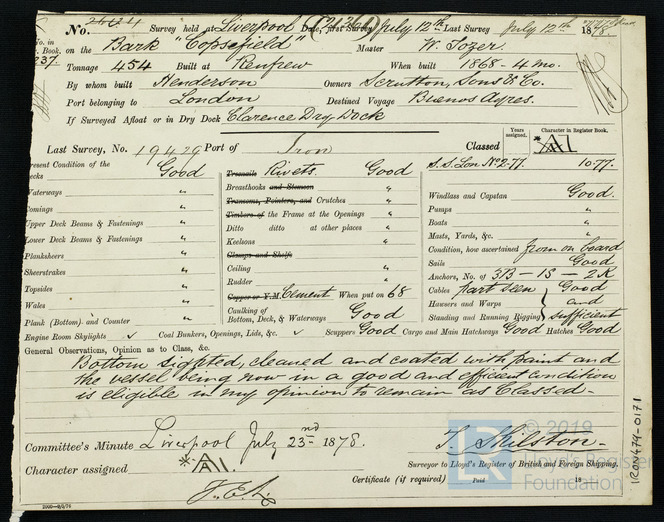 No. 2424 Survey held at Liverpool Date, first Survey July 12th Last Survey July 12th 1878.
No. in Book. on the Bark "Copsefield" Master W. Tozer.
237. Tonnage 454 Built at Renfrew When built 1868 - 4 mo.
By whom built Henderson Owners Scrutton, Sons & Co.
Port belonging to London Destined Voyage Buenos Ayres.
If Surveyed Afloat or in Dry Dock Clarence Dry Dock
Years assigned. Character in Register Book.
Last Survey, No. 19429 Port of Iron Classed *A1
Present Condition of the Decks Good Treenails Rivets. Good S.S. Lon No 2-77. 10-77.
Waterways " Breasthooks and Stemson " Windlass and Capstan Good.
Comings " Transoms, Pointers, and Crutches " Pumps "
Upper Deck Beams & Fastenings " Timbers of the Frame at the Openings " Boats "
Lower Deck Beams & Fastenings " Ditto ditto at other places " Masts, Yards, &c. "
Planksheers " Keelsons " Condition, how ascertained from on board
Sheerstrakes " Clamps and Shelfs Sails Good
Topsides " Ceiling " Anchors, No. of 3B - 1S - 2K
Wales " Rudder " Cables Part seen Good
Plank (Bottom) and Counter " Copper or Y.M. Cement When put on 68 Hawsers and Warps and
Caulking of Bottom, Deck, & Waterways Good Standing and Running Rigging sufficient
Engine Room Skylights ✓ Coal Bunkers, Openings, Lids, &c. ✓ Scuppers Good Cargo and Main Hatchways Good Hatches Good
General Observations, Opinion as to Class, &c.
Bottom sighted, cleaned and coated with paint and
the vessel being now in a good and efficient condition
is eligible in my opinion to remain as Classed-
Committee's Minute Liverpool July 23rd 1878.
T. Skilston.
Character assigned *A1.
Surveyor to Lloyd's Register of British and Foreign Shipping.
Certificate (if required) Paid 18
IRON479-0171
© 2019
Lloyd's Register
Foundation